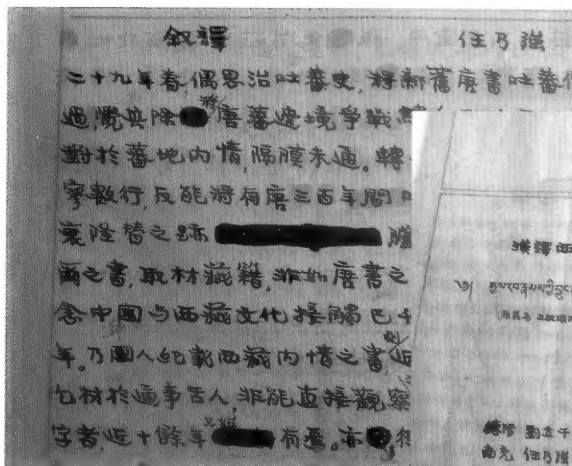 叙譯 任乃强
二十九年春,偶思治吐蕃史,將新舊唐書吐蕃
過,覺其除 唐蕃邊境爭戰
對於蕃地内情,隔膜未通。轉
寥數行,反能將有唐三百年間
衰隆替之跡
爾之書,取材藏籍,非如唐書之
念中國与西藏文化接觸已千
年。乃國人紀載西藏内情之書,近
乞材於通事舌人,非能直接觀察
字者,近十餘年 有焉。亦
漢譯西
劉立千
南充 任乃强